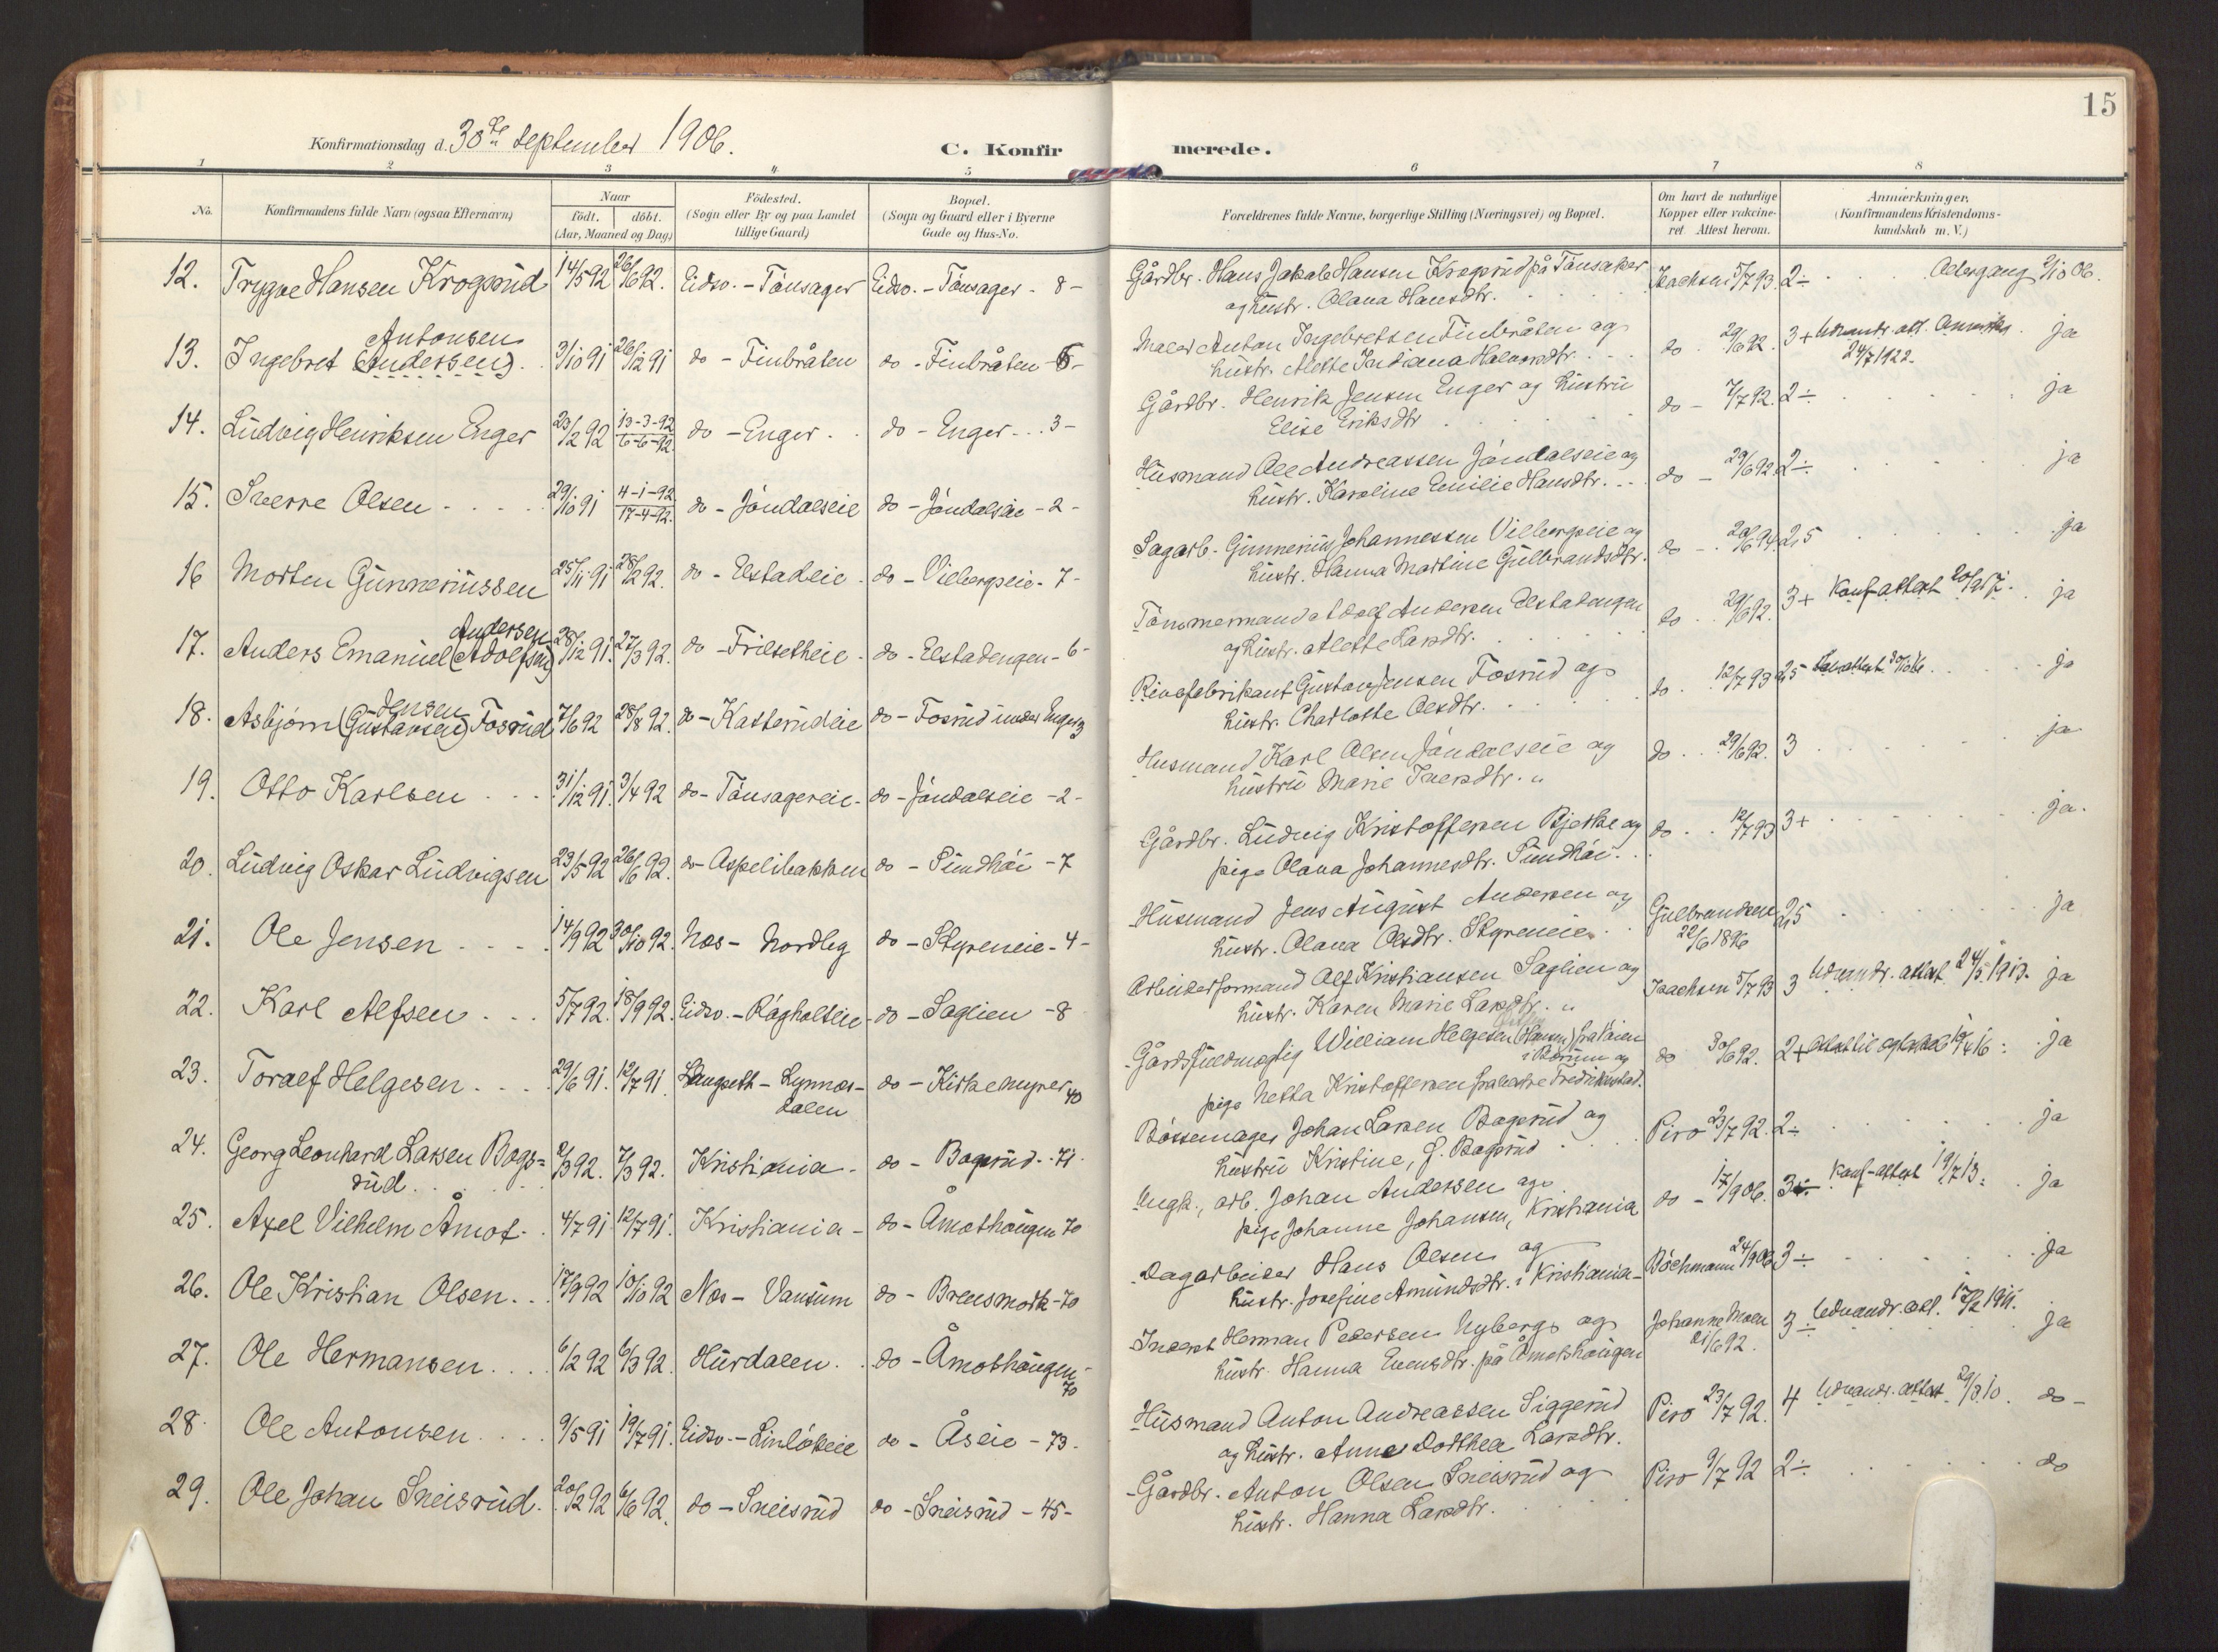 15
Konfirmationsdag d. 30te September 1906.
C. Konfirmerede.
1 2 3 4 5 6 7 8
No.
Konfirmandens fulde Navn (ogsaa Efternavn)
Naar
födt. döbt.
(Aar, Maaned og Dag)
Födested.
(Sogn eller By og paa Landet
tillige Gaard)
Bopæl.
(Sogn og Gaard eller i Byerne
Gade og Hus-No.
Forældrenes fulde Navne, borgerlige Stilling (Næringsvei) og Bopæl.
Om havt de naturlige
Kopper eller vakcine-
ret Attest herom.
Anmærkninger.
(Konfirmandens Kristendoms-
kundskab m. V.)
12. Trygve Hansen Krogsrud 14/5 92 26/6 92. Eidsv. - Tönsager Eidsv. - Tönsager - 8 -
Gårdbr. Hans Jakob Hansen Krogsrud på Tönsaker Isachsen 5/7 93. 2÷
og hustr. Olava Hansdtr.
Antonsen
13. Ingebret (Andersen). 3/10 91 26/12 91 do - Finbråten do - Finbråten - 6 -
Maler Anton Ingebretsen Finbråten og do 29/6 92. 3+ Udvandr. att. Amerika ja
24/7 1922.
hustr. Alette Indiana Halvorsdtr.
14. Ludvig Henriksen Enger 23/2 92 13-3-92 do - Enger do - Enger - 3 -
6-6-92.
Gårdbr. Henrik Jensen Enger og hustru do - 7/7 92. 2÷ ja
Elise Eriksdtr
15. Sverre Olsen 29/10 91 4-1-92 do - Jöndalseie do - Jöndalseie - 2 -
17-4-92.
Husmand Ole Andreassen Jöndalseie og do - 29/6 92 2÷ ja
hustr. Karoline Emilie Hansdtr.
16 Morten Gunneriussen 25/11 91 28/2 92. do - Elstadeie do - Vilbergseie - 7 -
Sagarb. Gunnerius Johannessen Vilbergseie og do - 20/6 94. 2,5 ja
hustr. Hanna Martine Gulbrandsdtr.
Andersen
17. Anders Emanuel (Adolfsen) 28/12 91. 27/3 92. do - Frilsetheie do - Elstadengen - 6 -
Tömmermand Adolf Andersen Elstadengen do 29/6 92. 3+ Konf attest ja
og hustr. Alette Larsdtr.
Jensen
18. Asbjörn (Gustavsen) Fosrud 7/6 92 28/8 92. do - Kasterudeie do - Fosrud under Enger 3
Rivefabrikant Gustav Jensen Fosrud og do. 12/7 93 2,5 ja
hustr. Charlotte Olsdtr.
19. Otto Karlsen 31/12 91. 3/4 92 do - Tönsagereie do - Jöndalseie - 2 -
Husmand Karl Olsen Jöndalseie og do 29/6 92. 3 ja
hustru Marie Iversdtr. "
20. Ludvig Oskar Ludvigsen 23/5 92 26/6 92. do - Aspelibakken do - Sundhöi - 7
Gårdbr. Ludvig Kristoffersen Bjerke og do 12/7 93 3+ ja.
pige Olava Johannesdtr. Sundhöi.
21. Ole Jensen 14/9 92 30/10 92. Nes - Nordleg do - Styreneie - 4 -
Husmand Jens August Andersen og Gulbrandsen 2,5 ja
hustr. Olava Olsdtr. Styreneie. 22/6 1896
22. Karl Alfsen 5/7 92. 18/9 92. Eidsv. - Rågholteie do - Saglien - 8
Arbeiderformand Alf Kristiansen Saglien og Isachsen 5/7 93 3 Udvandr. attest ja
hustr. Karen Marie Larsdtr. "
23. Toralf Helgesen 29/6 91. 12/7 91 Langseth - Lynnes-
dalen
do - Kirkemyrer 40
Gårdsfuldmægtig William Helgesen do 30/6 92. 2+ ja
i Bærum og
pige Netta Kristoffersen fra Fredrikstad.
24. Georg Leonhard Larsen Bogs-
rud 2/3 92. 7/3 92. Kristiania - do - Bogsrud - 71 -
Bössemager Johan Larsen Bogsrud og Piro 23/7 92. 2÷ ja
hustru Kristine, f. Bogsrud
25. Axel Vilhelm Åmot 4/7 91 12/7 91. Kristiania - do - Åmothaugen 70
Ungk., arb. Johan Andersen og do - 17/9 06. 3÷ Konf-attest 19/7 13. ja
pige Johanne Johansen, Kristiania
26. Ole Kristian Olsen 17/9 92 10/10 92 Nes - Vansum do - Brensmork - 70
Dagarbeider Hans Olsen og Böchmann 24/9 06 3÷ ja
hustr. Josefine Amundsdtr. i Kristiania
27. Ole Hermansen 6/2 92 6/3 92. Hurdalen do - Åmothaugen -
70
Inderst Herman Pedersen Nyberg og Johanne Moen 3÷ Udvandr. att. ja
hustr. Hanna Evensdtr. på Åmotshaugen 21/6 92.
28. Ole Antonsen 9/5 91 19/7 91. Eidsv. - Linlökeie do - Åseie - 73.
Husmand Anton Andreassen Siggerud Piro 23/7 92. 4 Udvandr. attest 29/3 10. do -
og hustr. Anne Dorthea Larsdtr.
29. Ole Johan Sneisrud. 20/2 92 6/6 92. do - Sneisrud do - Sneisrud - 45 -
Gårdbr. Anton Olsen Sneisrud og Piro 9/7 92 2÷ do
hustr. Hanna Larsdtr.